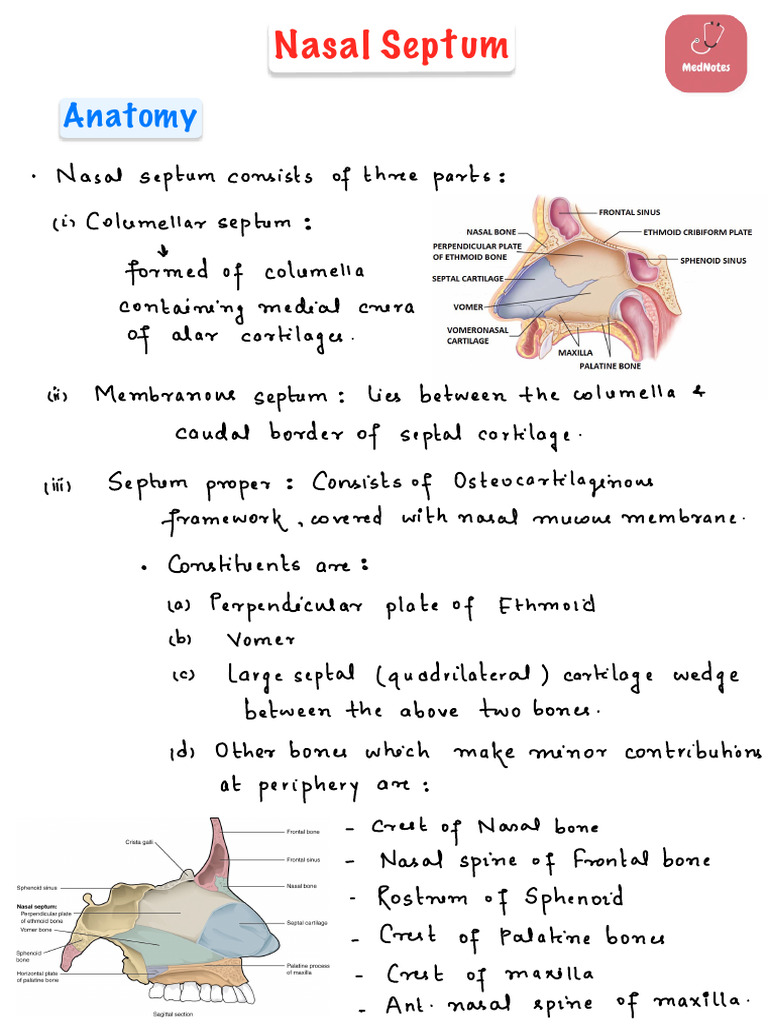 Nasal Septum
MedNotes
Anatomy
• Nasal septum consists of three parts:
(i) Columellar septum:
↓
formed of columella
containing medial crura
of alar cartilages.
FRONTAL SINUS
NASAL BONE
ETHMOID CRIBIFORM PLATE
PERPENDICULAR PLATE
OF ETHMOID BONE
SPHENOID SINUS
SEPTAL CARTILAGE
VOMER
VOMERONASAL
CARTILAGE
MAXILLA
PALATINE BONE
(ii) Membranous septum: Lies between the columella &
caudal border of septal cartilage.
(iii) Septum proper: Consists of Osteocartilaginous
framework, covered with nasal mucous membrane.
• Constituents are:
(a) Perpendicular plate of Ethmoid
(b) Vomer
(c) Large septal (quadrilateral) cartilage wedge
between the above two bones.
(d) Other bones which make minor contributions
at periphery are:
- Crest of Nasal bone
- Nasal spine of Frontal bone
- Rostrum of Sphenoid
- Crest of Palatine bones
- Crest of maxilla
- Ant. nasal spine of maxilla.
Frontal bone
Crista galli
Frontal sinus
Sphenoid sinus
Nasal bone
Nasal septum:
Perpendicular plate
of ethmoid bone
Septal cartilage
Vomer bone
Sphenoid
bone
Palatine process
of maxilla
Horizontal plate
of palatine bone
Sagittal section